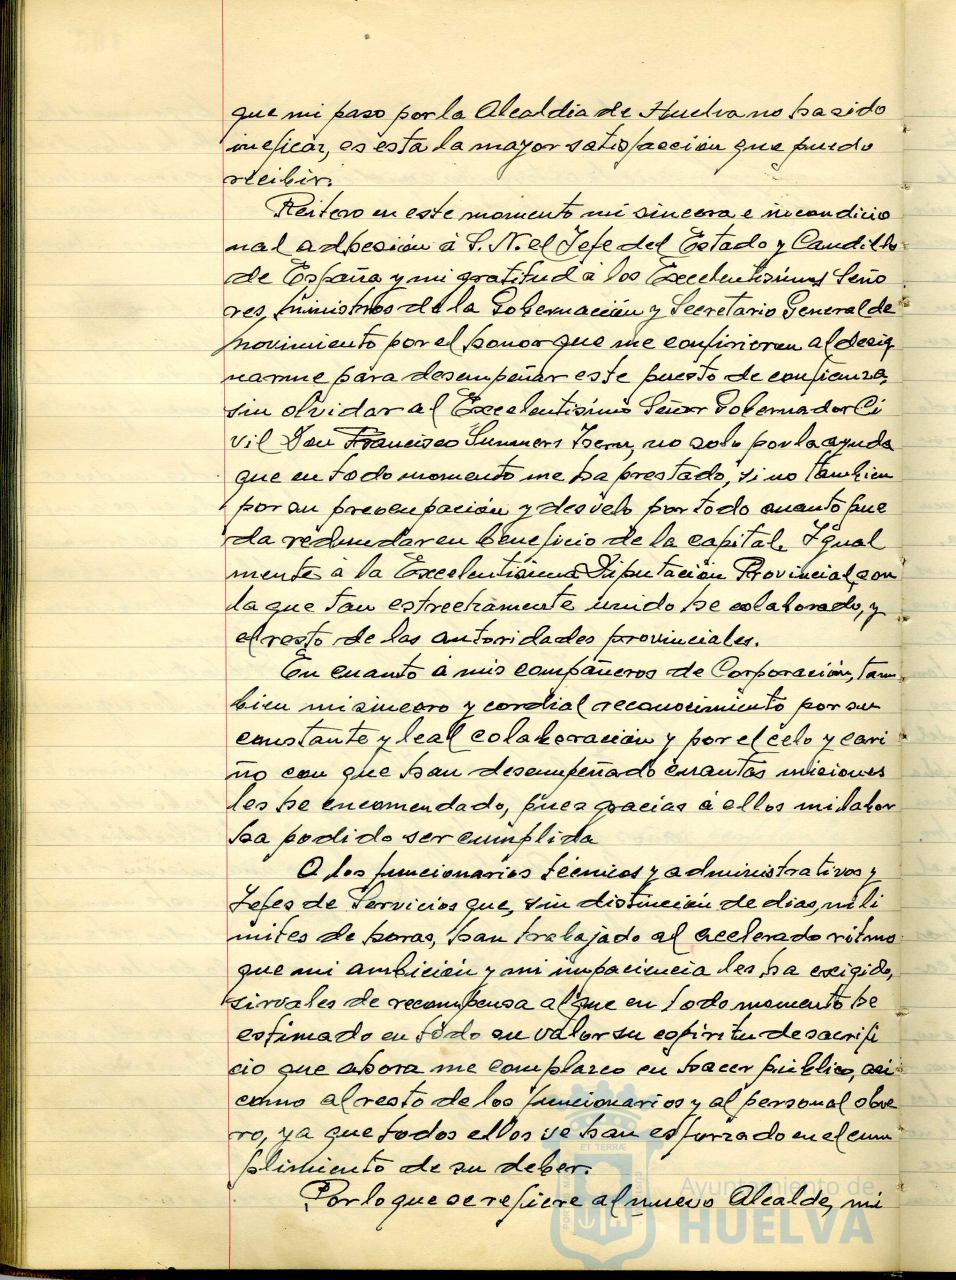 que mi paso por la Alcaldia de Huelva no ha sido
ineficaz, es esta la mayor satisfacción que puedo
recibir.
Reitero en este momento mi sincera e incondicio
nal adhesión á S. N. el Jefe del Estado y Caudillo
de España y mi gratitud á los Excelentísimos Seño
res Ministros de la Gobernación y Secretario General de
Movimiento por el honor que me confirieron al desig
narme para desempeñar este puesto de confianza,
sin olvidar al Excelentísimo Señor Gobernador Ci
vil Don Francisco Summers Isern, no solo por la ayuda
que en todo momento me ha prestado, si no tambien
por su preocupación y desvelo por todo cuanto pue
da redundar en beneficio de la capital. Igual
mente á la Excelentísima Diputación Provincial, con
la que tan estrechamente unido he colaborado, y
el resto de las autoridades provinciales.
En cuanto á mis compañeros de Corporación, tam
bien mi sincero y cordial reconocimiento por su
constante y leal colaboración y por el celo y cari
ño con que han desempeñado cuantas misiones
les he encomendado, pues gracias á ellos mi labor
ha podido ser cumplida
A los funcionarios técnicos y administrativos y
Jefes de Servicios que, sin distinción de dias, ni li
mites de horas, han trabajado al acelerado ritmo
que mi ambición y mi impaciencia les ha exigido,
sirvales de recompensa al que en todo momento he
estimado en todo su valor su espíritu de sacrifi
cio que ahora me complazco en hacer público, asi
como al resto de los funcionarios y al personal obre
ro, ya que todos ellos se han esforzado en el cum
plimiento de su deber.
Por lo que se refiere al nuevo Alcalde, mi
ET TERRÆ
Ayuntamiento de
HUELVA